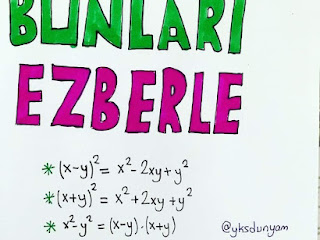 BUNLARI
EZBERLE
* (x-y)² = x² - 2xy + y²
* (x+y)² = x² + 2xy + y²
* x² - y² = (x-y).(x+y)
@yksdunyam